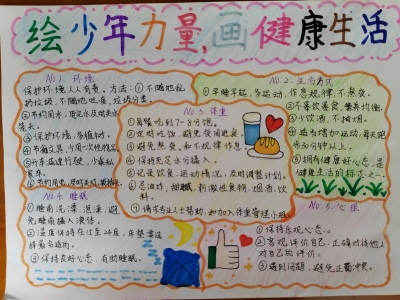 绘少年力量,画健康生活
NO.1. 环境
保护环境人人有责。方法:①不随地乱
扔垃圾,不随地吐痰,垃圾分类。
②节约用水,用完水及时关水
龙头。
③保护环境,多植树。
④节省文具,少用一次性物品。
⑤开车减速行驶,少乘私
家车。
⑥节约用电,及时关灯,拔插头。
NO.2. 生活方式
①早睡早起,多运动,作息规律,不熬夜。
②不暴饮暴食,营养均衡。
③少饮酒,不抽烟。
④适当增加运动,每天跑
步30分钟以上。
⑤拥有健康好心态,是
健康生活的标志之一。
NO.3. 体重
①用餐吃到7-8分饱。
②定时吃饭,避免夜间进食。
③避免熬夜,和不规律作息
④保持充足水分摄入。
⑤记录饮食、运动情况,及时调整计划。
⑥忌油炸,甜腻,刺激性食物,烟酒,饮
料。
⑦请求专业人士帮助,如加入体重管理小组。
NO.4. 睡眠
①睡前洗澡,泡澡,避
免睡前摄入液体。
③
④保持良好心态,有助睡眠。
NO.5. 心理
①保持乐观心态。
②客观评价自己,正确对待他人
对自己的评价。
③遇到问题,避免正面冲突。